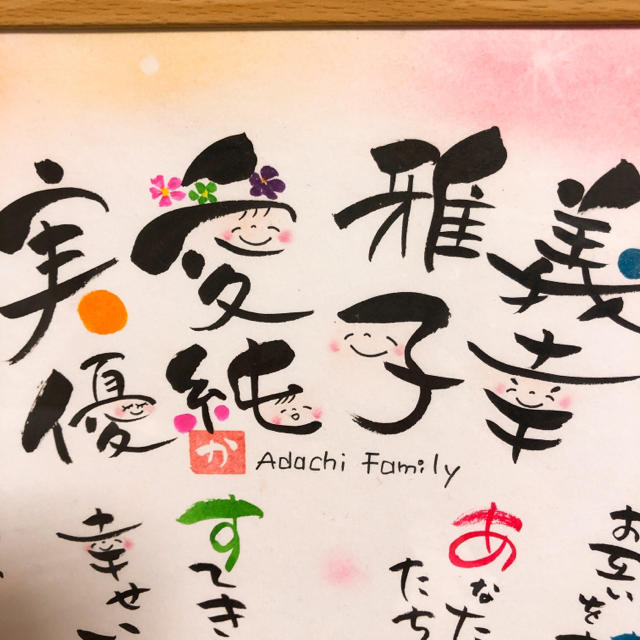 義幸
雅子
愛純
実優
か
Adachi Family
お互いを
あなた
たち
すてき
幸せ